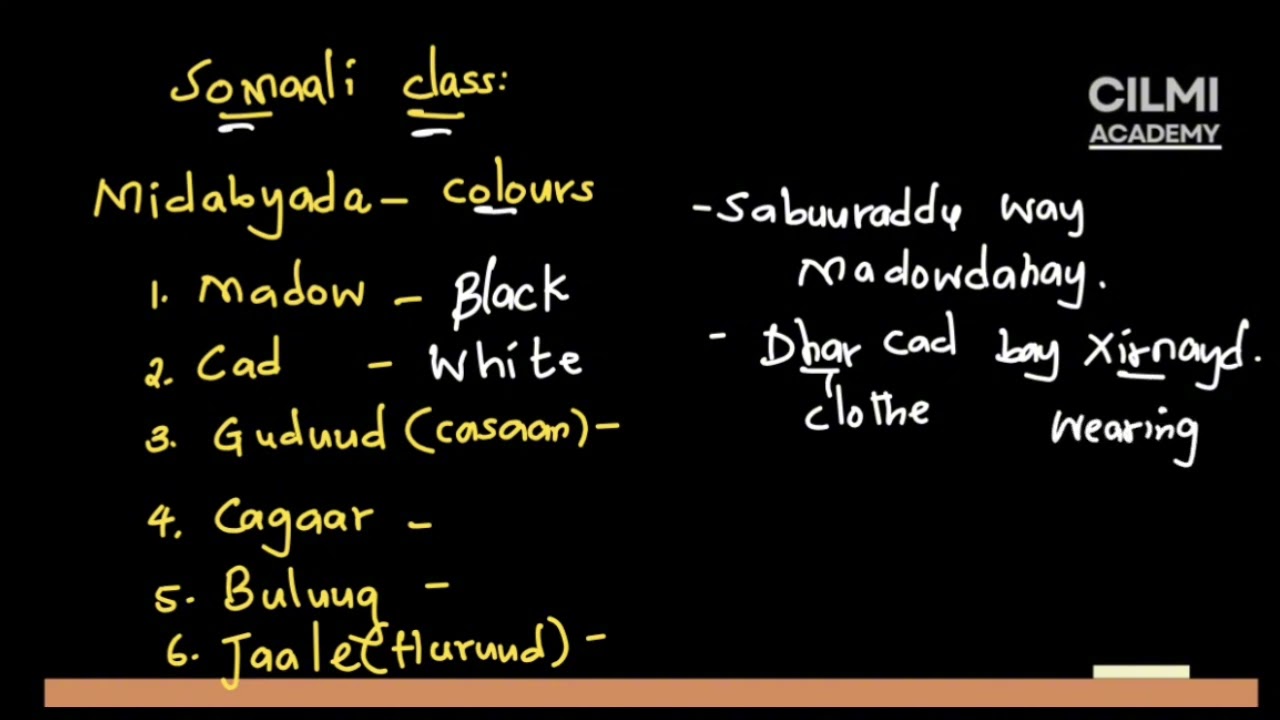 Somaali class:
CILMI
ACADEMY
Midabyada - colours
1. Madow - Black
2. Cad - White
3. Guduud (casaan) -
4. Cagaar -
5. Buluug -
6. Jaale (Huruud) -
- Sabuuraddu way
Madowdahay.
- Dhar cad bay Xirnayd.
clothe wearing